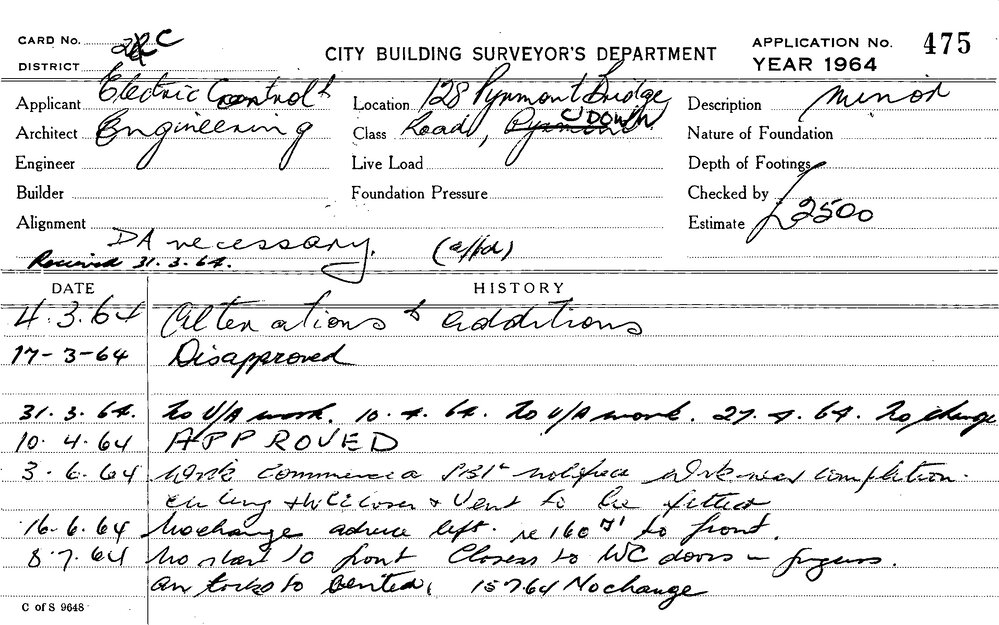 CARD No.
DISTRICT 2RC
CITY BUILDING SURVEYOR'S DEPARTMENT
APPLICATION No. 475
YEAR 1964
Applicant Electric Control &
Architect Engineering
Engineer
Builder
Alignment
DA necessary. (affd)
Received 31.3.64.
Location 128 Pyrmont Bridge
Class Road, Pyrmont C'DOWN
Live Load
Foundation Pressure
Description minor
Nature of Foundation
Depth of Footings
Checked by
Estimate £2500
DATE HISTORY
4.3.64 Alterations & additions
17-3-64 Disapproved
31.3.64. No U/A work. 10.4.64. No U/A work. 27.4.64. No change
10.4.64 APPROVED
3.6.64 Work commenced notified work near completion.
& Vent to be fitted
16.6.64 No change advice left. re 160 to front.
8.7.64 No start to front Closers to WC doors –
to vented, 15764 No change
C of S 9648